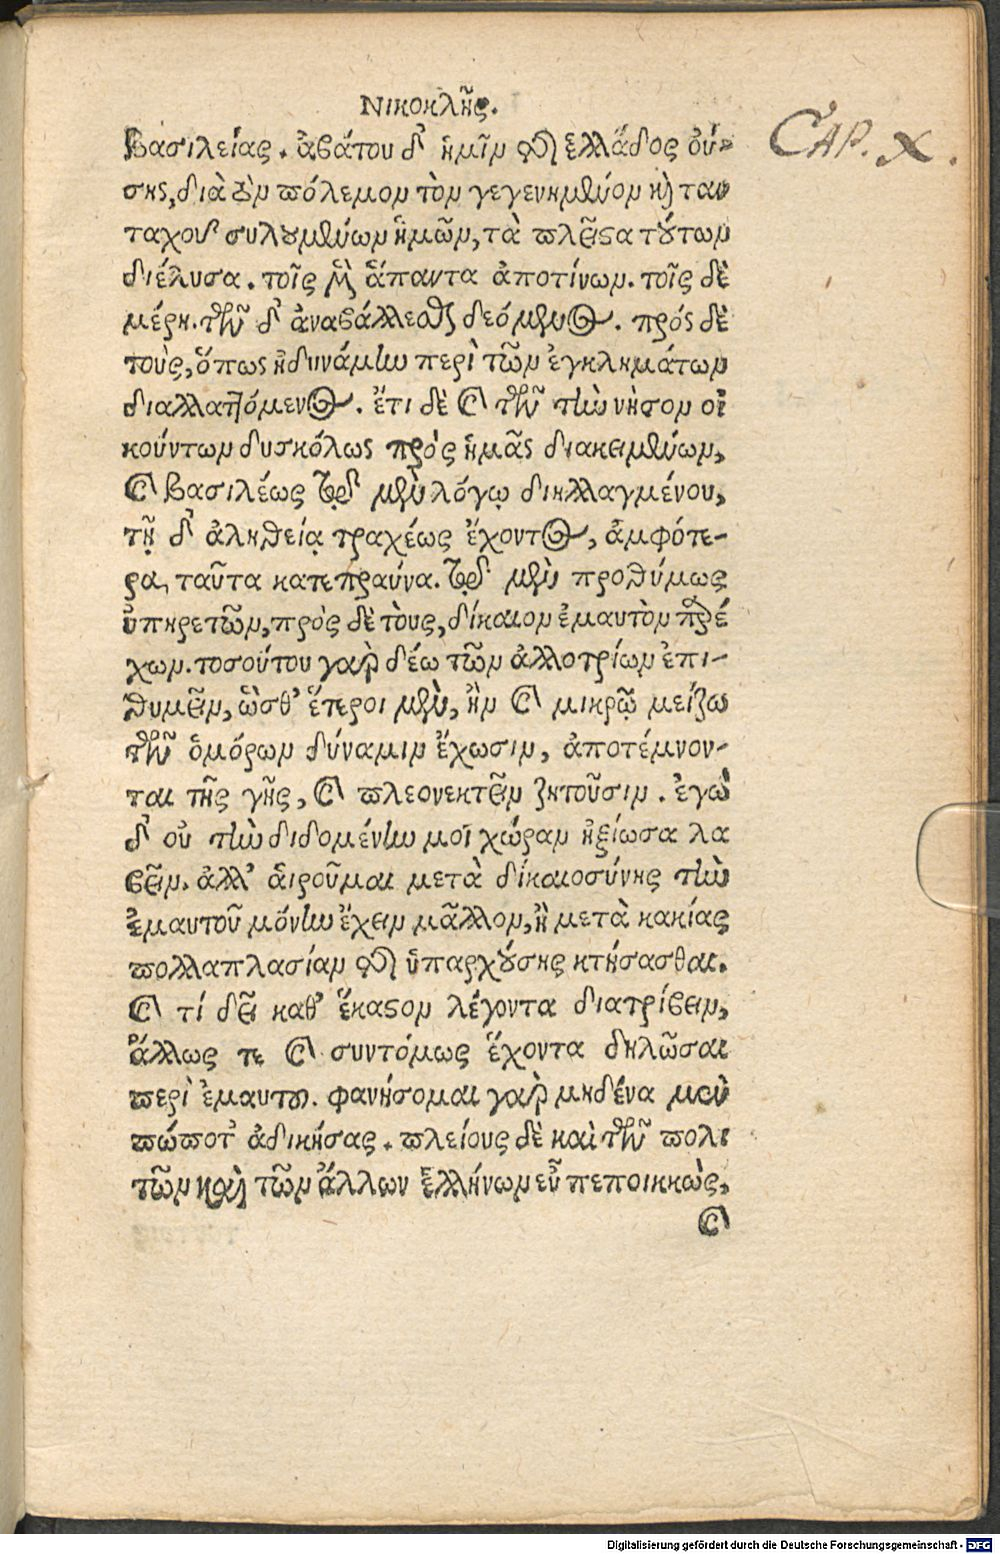 Νικοκλῆς.
CAP. X.
βασιλείας. ἀβάτου δ' ἡμῖν τῆς ἑλλάδος οὔ-
σης, διὰ τὸν πόλεμον τὸν γεγενημένον καὶ παν
ταχοῦ συλουμένων ἡμῶν, τὰ πλεῖστα τούτων
διέλυσα. τοῖς μὲν ἅπαντα ἀποτίνων. τοῖς δὲ
μέρη. τῶν δ' ἀναβάλλεσθαι δεόμενος. πρός δὲ
τοὺς, ὅπως ἠδυνάμην περὶ τῶν ἐγκλημάτων
διαλλαττόμενος. ἔτι δὲ καὶ τῶν τὴν νῆσον οἰ
κούντων δυσκόλως πρὸς ἡμᾶς διακειμένων,
καὶ βασιλέως τῷ μὲν λόγῳ διηλλαγμένου,
τῇ δ' ἀληθείᾳ τραχέως ἔχοντος, ἀμφότε-
ρα, ταῦτα κατεπραύνα. τῷ μὲν προθύμως
ὑπηρετῶν, πρὸς δὲ τοὺς, δίκαιον ἐμαυτὸν παρέ
χων. τοσούτου γαρ δέω τῶν ἀλλοτρίων ἐπι-
θυμεῖν, ὥσθ' ἕτεροι μὲν, ἢν καὶ μικρῷ μείζω
τῶν ὁμόρων δύναμιν ἔχωσιν, ἀποτέμνον-
ται τῆς γῆς, καὶ πλεονεκτεῖν ζητοῦσιν. ἐγὼ
δ' οὐ τὴν διδομένην μοι χώραν ἠξίωσα λα
βεῖν. ἀλλ' αἱροῦμαι μετὰ δικαιοσύνης τὴν
ἐμαυτοῦ μόνην ἔχειν μᾶλλον, ἢ μετὰ κακίας
πολλαπλασίαν τῆς ὑπαρχούσης κτήσασθαι.
καὶ τί δεῖ καθ' ἕκαστον λέγοντα διατρίβειν,
ἄλλως τε καὶ συντόμως ἔχοντα δηλῶσαι
περὶ ἐμαυτοῦ. φανήσομαι γαρ μηδένα μὲν
πώποτ' ἀδικήσας. πλείους δὲ καὶ τῶν πολι
τῶν καὶ τῶν ἄλλων ἑλλήνων εὖ πεποιηκὼς,
καὶ
Digitalisierung gefördert durch die Deutsche Forschungsgemeinschaft - DFG